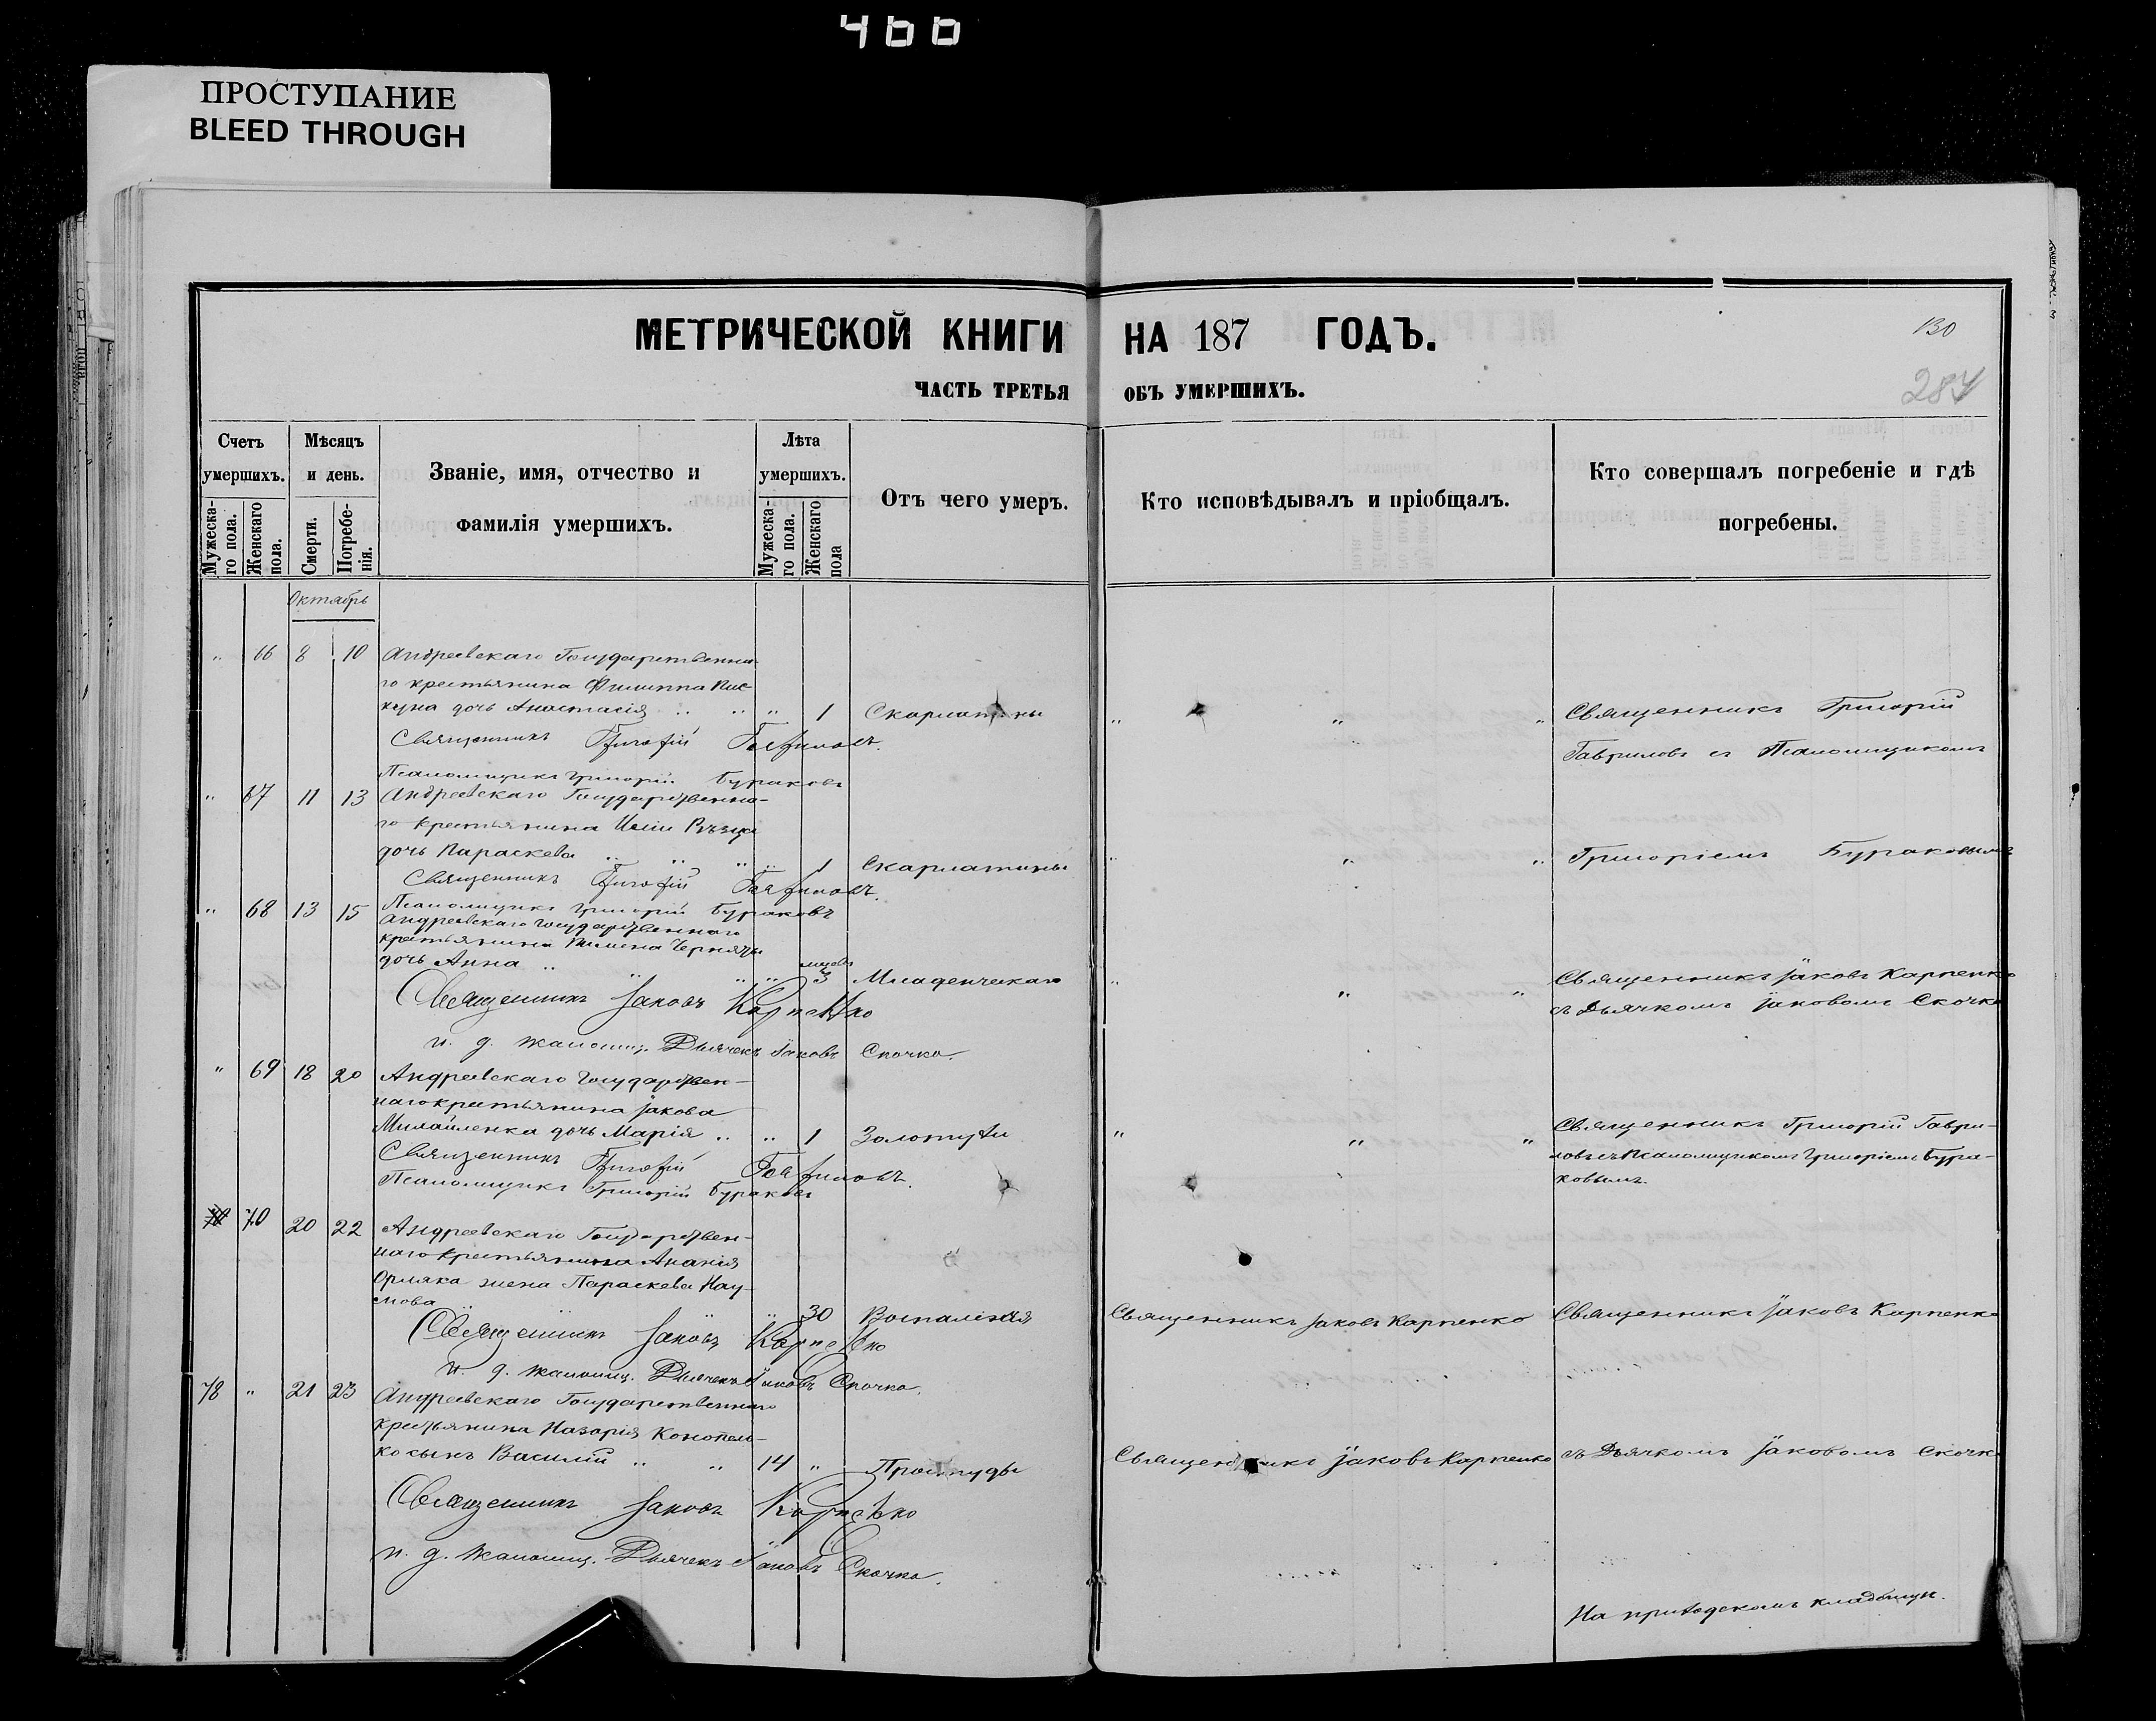 466
ПРОСТУПАНИЕ
BLEED THROUGH
МЕТРИЧЕСКОЙ КНИГИ НА 187 ГОДЪ.
130
ЧАСТЬ ТРЕТЬЯ ОБЪ УМЕРШИХЪ.
Счетъ умершихъ.
Мужеска-го пола.
Женскаго пола.
Мѣсяцъ и день.
Смерти.
Погребе-нія.
Званіе, имя, отчество и
фамилія умершихъ.
Лѣта умершихъ.
Мужеска-го пола.
Женскаго пола
Отъ чего умеръ.
Кто исповѣдывалъ и пріобщалъ.
Кто совершалъ погребеніе и гдѣ
погребены.
Октябрь
„ 66 8 10 Андреевскаго Государственна-
го крестьянина Филиппа
дочь Анастасія „ 1 Скарлатины „ „ „ Священникъ Григорій
Священникъ Григорій Гавриловъ.
Гавриловъ съ Псаломщикомъ
Псаломщикъ Григорій Бураковъ
„ 67 11 13 Андреевскаго Государственна-
го крестьянина
дочь Параскева „ 1 Скарлатины „ „ „ Григоріемъ Бураковымъ
Священникъ Григорій Гавриловъ.
Псаломщикъ Григорій Бураковъ
„ 68 13 15 Андреевскаго Государственнаго
крестьянина Пимена
дочь Анна „ 3 Младенческаго „ „ „ Священникъ Іаковъ Карпенко
Священникъ Іаковъ Карпенко
съ Дьячкомъ Іаковомъ Скочко
и. д. псаломщ. Дьячекъ Іаковъ Скочко.
„ 69 18 20 Андреевскаго Государствен-
наго крестьянина Іакова
Михайленка дочь Марія „ 1 Золотухи „ „ „ Священникъ Григорій Гаври-
ловъ съ Псаломщикомъ Григоріемъ Бура-
ковымъ.
Священникъ Григорій Гавриловъ.
Псаломщикъ Григорій Бураковъ
70 20 22 Андреевскаго Государствен-
наго крестьянина Ананія
Орляка жена Параскева Нау-
мова „ 30 Воспаленія Священникъ Іаковъ Карпенко Священникъ Іаковъ Карпенко
Священникъ Іаковъ Карпенко
и. д. псаломщ. Дьячекъ Іаковъ Скочко.
78 „ 21 23 Андреевскаго Государственнаго
крестьянина Назарія Конопель-
ко сынъ Василій 14 „ Простуды Священникъ Іаковъ Карпенко съ Дьячкомъ Іаковомъ Скочко
Священникъ Іаковъ Карпенко
и. д. псаломщ. Дьячекъ Іаковъ Скочко.
На приходскомъ кладбищѣ.